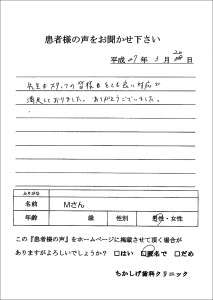 患者様の声をお聞かせ下さい
平成27年3月20日
先生もスタッフの皆様もとても良い対応で
満足しておりました。ありがとうございました。
ふりがな
名前 Mさん
年齢 歳 性別 男性・女性
この『患者様の声』をホームページに掲載させて頂く場合が
ありますがよろしいでしょうか? □はい □匿名で □だめ
ちかしげ歯科クリニック